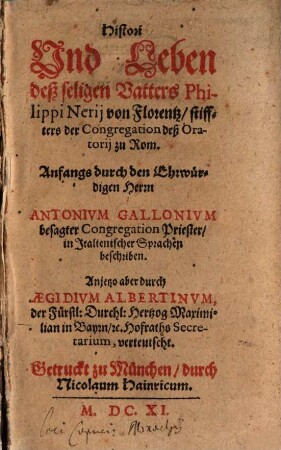 Histori
Und Leben
deß seligen Vatters Phi-
lippi Nerij von Florentz/ stiff-
ters der Congregation deß Ora-
torij zu Rom.
Anfangs durch den Ehrwür-
digen Herrn
ANTONIVM GALLONIVM
besagter Congregation Priester/
in Italienischer Sprachen
beschriben.
Anjetzo aber durch
ÆGIDIVM ALBERTINVM,
der Fürstl: Durchl: Hertzog Maximi-
lian in Bayrn/ꝛc. Hofraths Secre-
tarium, verteutscht.
Getruckt zu München/ durch
Nicolaum Hainricum.
M. DC. XI.